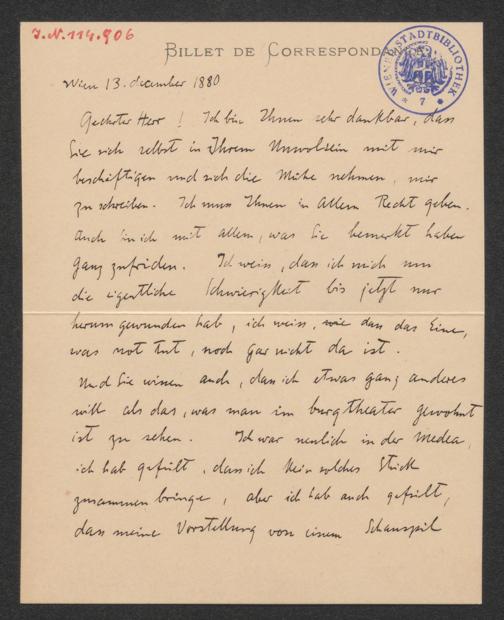 J.N. 114.906
BILLET DE CORRESPONDANCE
WIENER STADTBIBLIOTHEK
7
Wien 13. december 1880
Geehrter Herr! Ich bin Ihnen sehr dankbar, dass
Sie sich selbst in Ihrem Unwolsein mit mir
beschäftigen und sich die Mühe nehmen, mir
zu schreiben. Ich muss Ihnen in Allem Recht geben.
Auch bin ich mit allem, was Sie bemerkt haben
ganz zufriden. Ich weiss, dass ich mich um
die eigentliche Schwierigkeit bis jetzt nur
herum gewunden hab, ich weiss, wie dass das Eine,
was not tut, noch gar nicht da ist.
Und Sie wissen auch, dass ich etwas ganz anderes
will als das, was man im burgtheater gewohnt
ist zu sehen. Ich war neulich in der Medea,
ich hab gefült, dass ich kein solches Stück
zusammen bringe, aber ich hab auch gefült,
dass meine Vorstellung von einem Schauspil